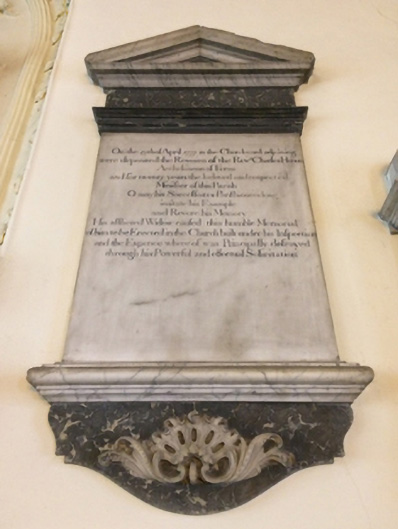 On the of April in the Church yard adjoining
were deposited the Remains of the Revd Charles
Archdeacon of
and for twenty years the beloved and respected
Minister of this Parish
O may his Successors
imitate his Example
and Revere his Memory
His afflicted Widow caused this humble Memorial
of him to be Erected in the Church built under his Inspection
and the Expence where of was Principally defrayed
through his Powerful and effectual Solicitation